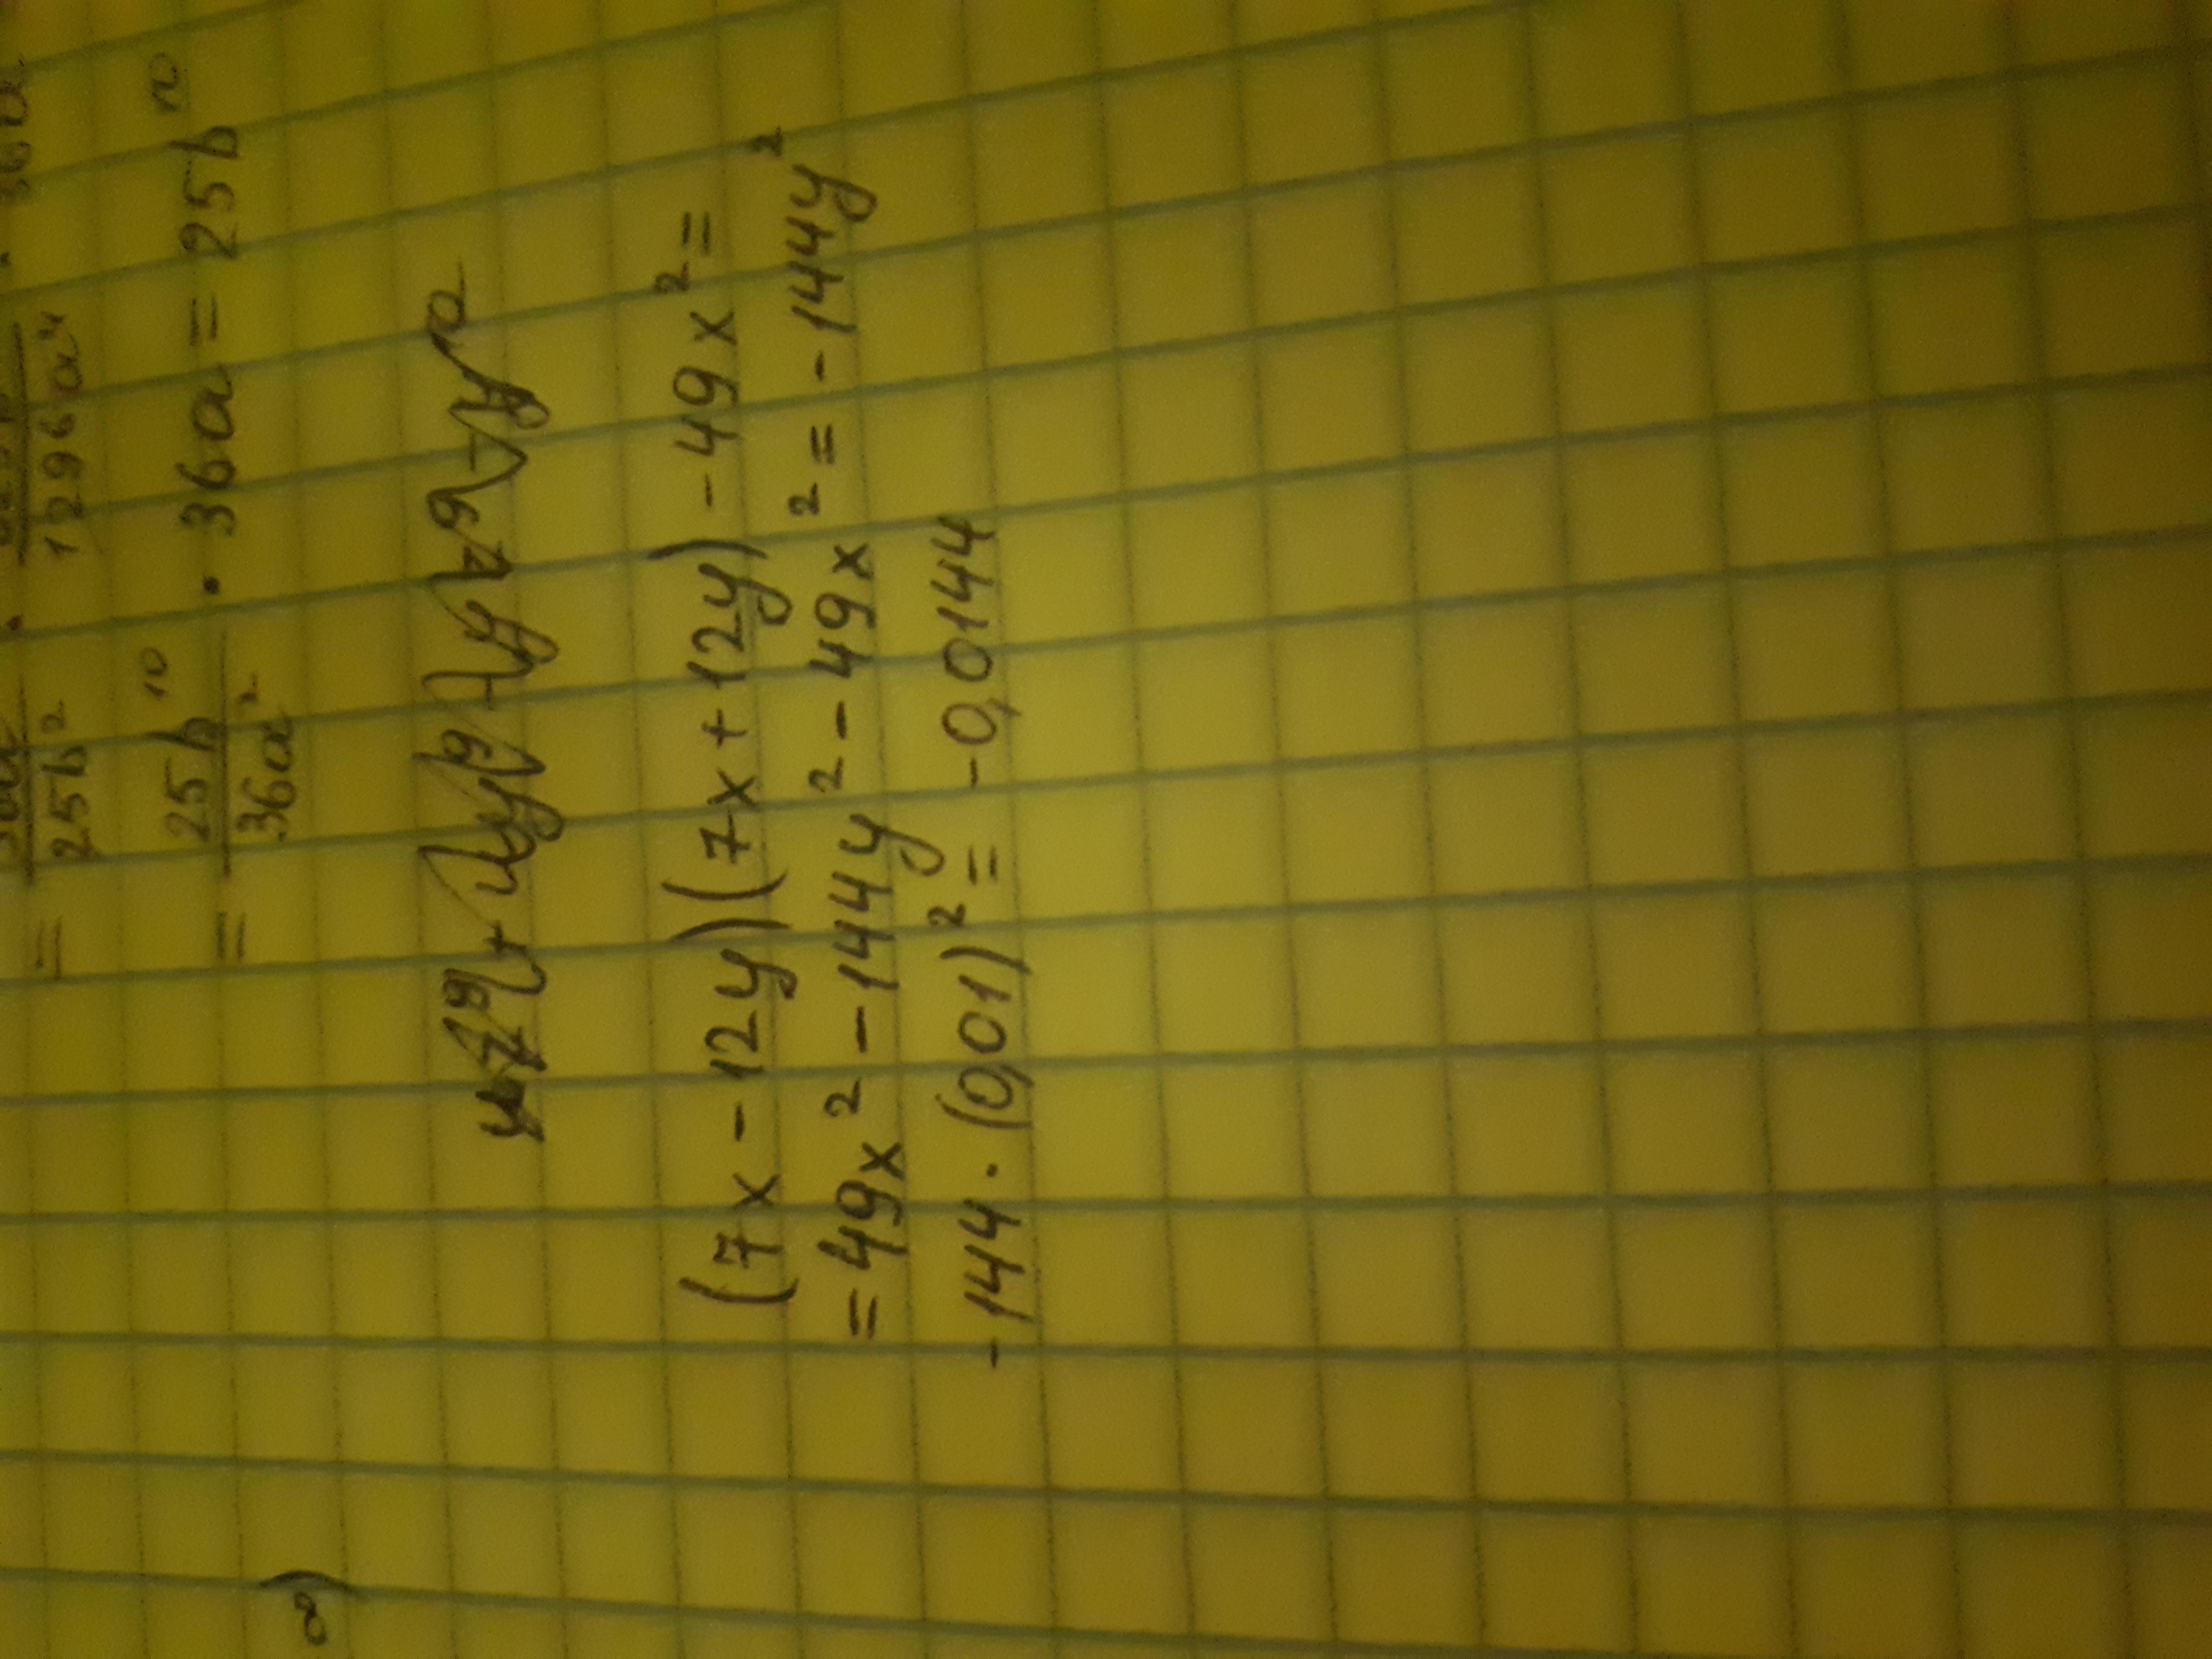 = 36a / 25b² · 1296a⁴ · 36a
= 25b¹⁰ / 36a² · 36a = 25b¹⁰
8)
(7x - 12y)(7x + 12y) - 49x² =
= 49x² - 144y² - 49x² = - 144y²
- 144 · (0,01)² = - 0,0144